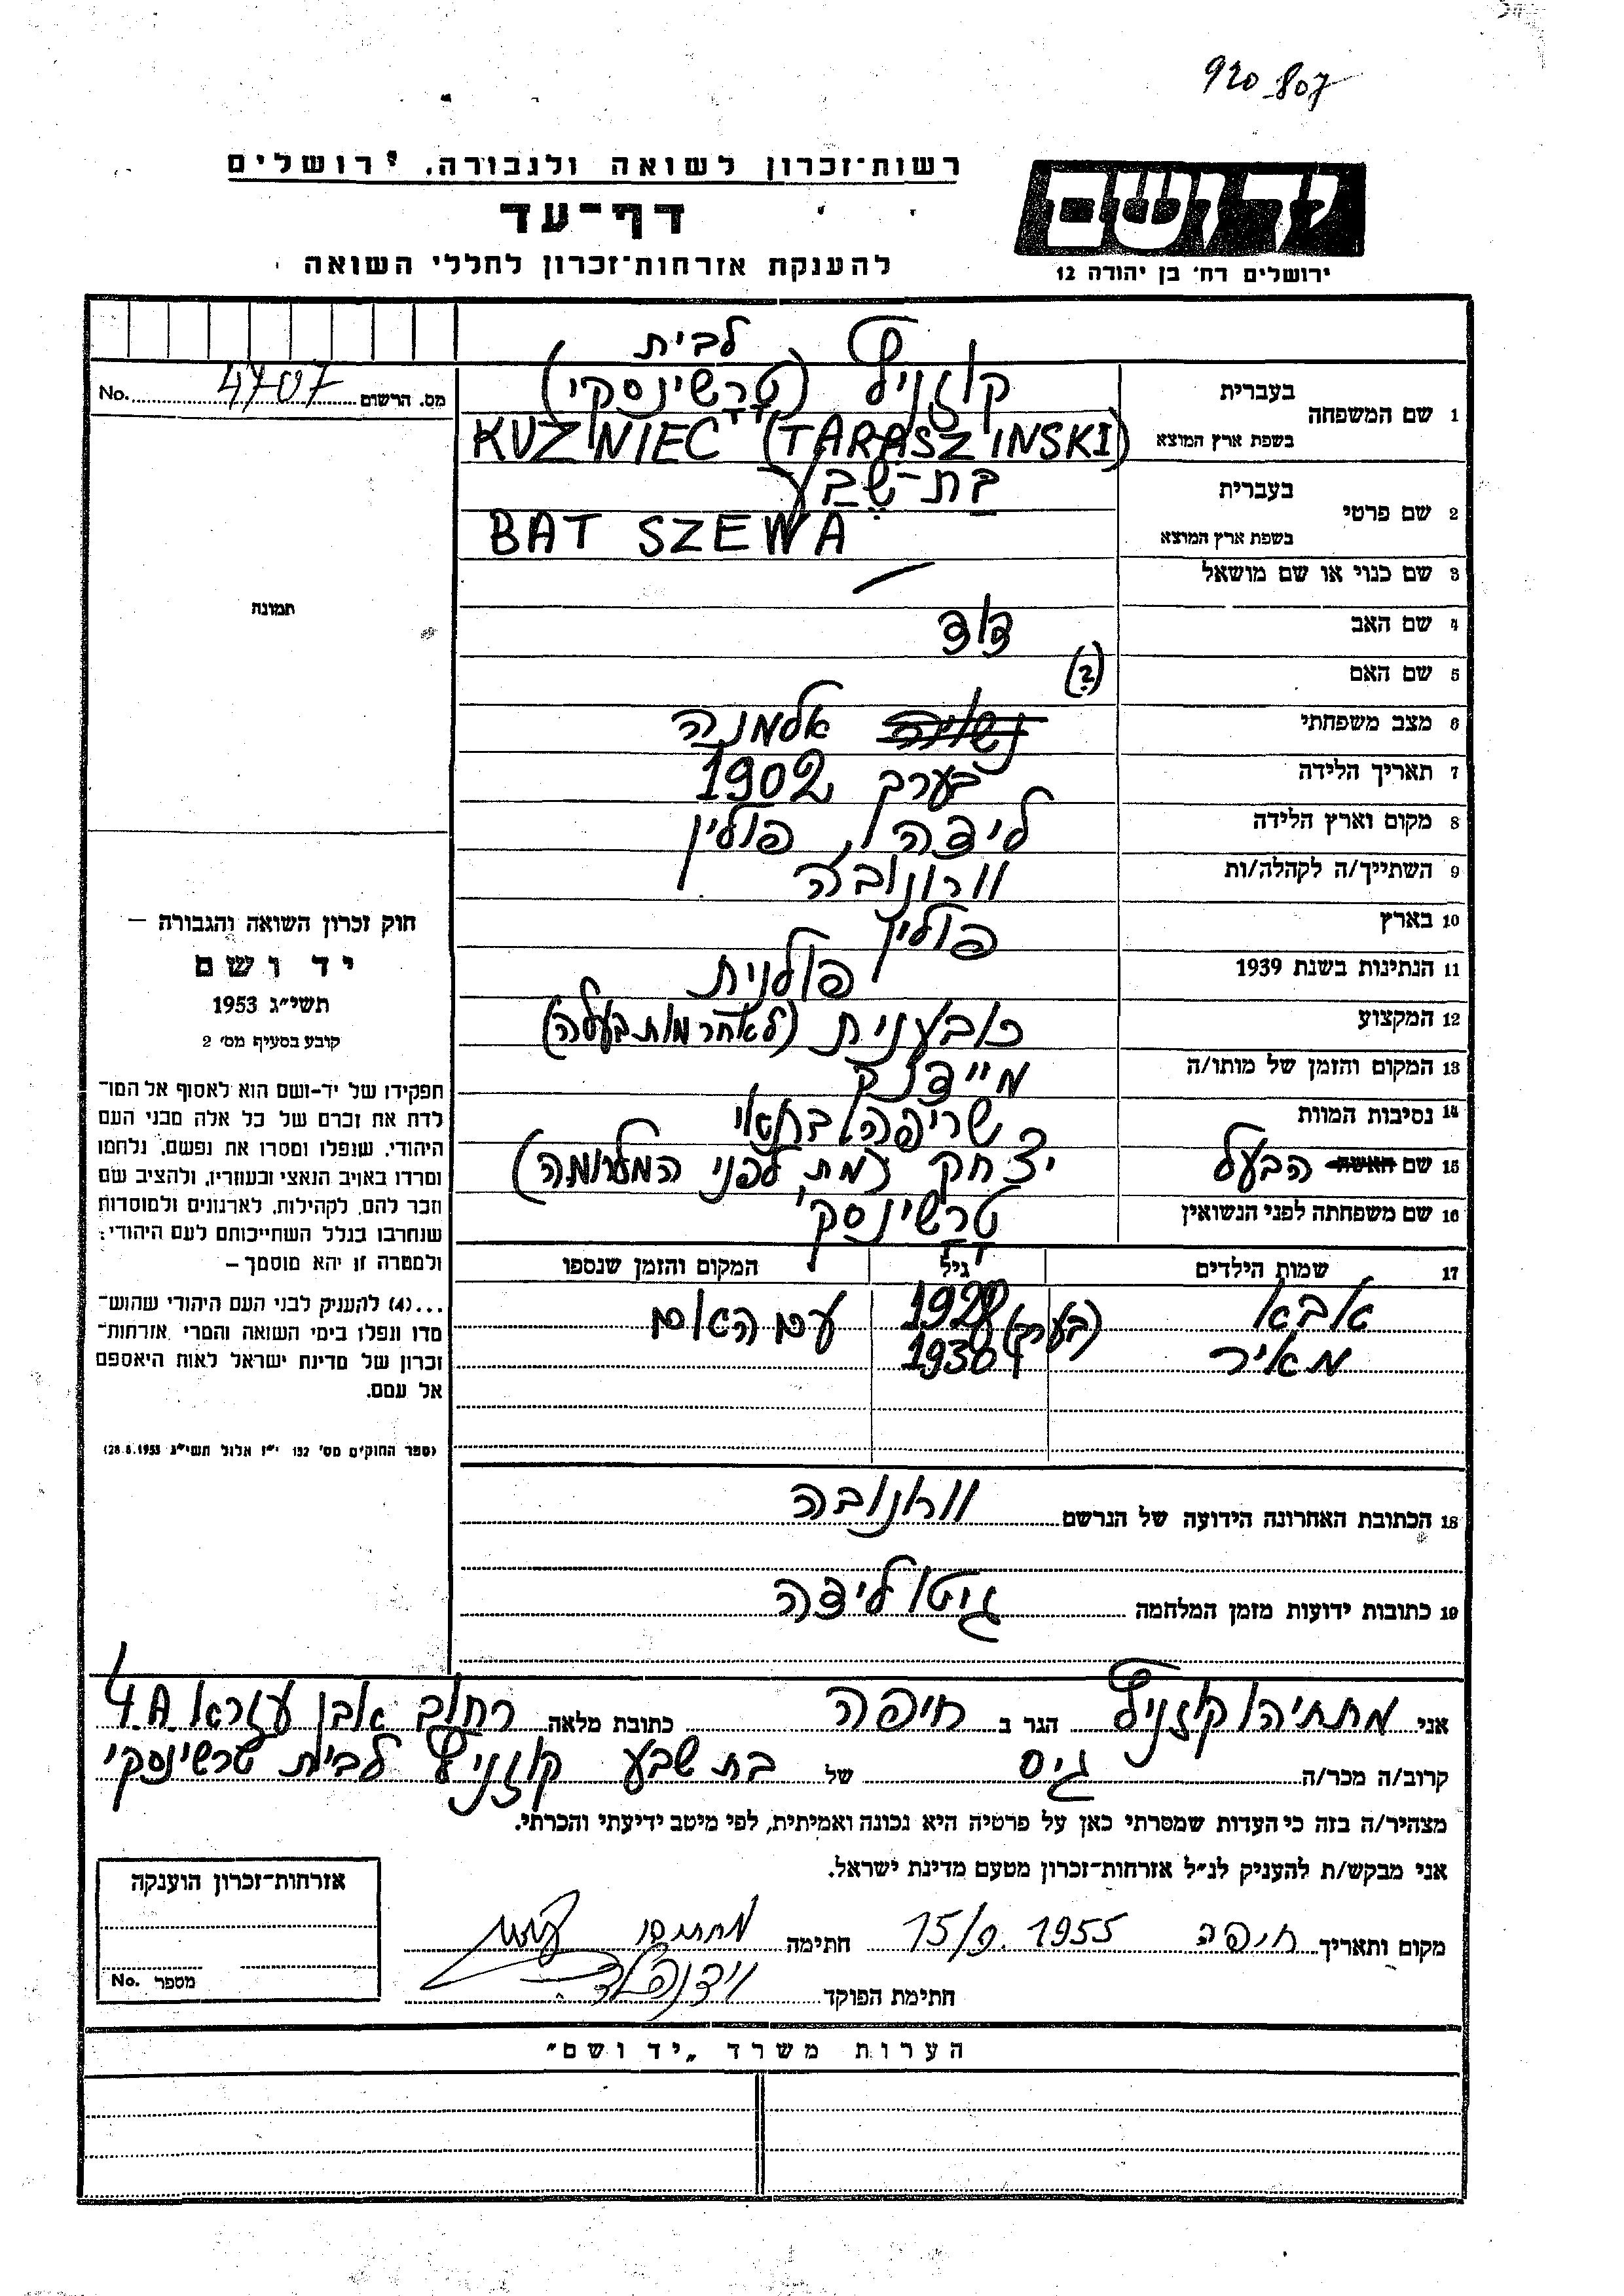 920 807
רשות־זכרון לשואה ולגבורה, ירושלים
דף־עד
להענקת אזרחות־זכרון לחללי השואה
יד ושם
ירושלים רח׳ בן יהודה 12
מס. הרשום 4707 No.
1 שם המשפחה
בעברית קוזניץ לבית (טרשינסקי)
בשפת ארץ המוצא KUZNIEC (TARASZINSKI)
2 שם פרטי
בעברית בת-שבע
בשפת ארץ המוצא BAT SZEWA
3 שם כנוי או שם מושאל —
4 שם האב דוד
5 שם האם (?)
6 מצב משפחתי נשואה אלמנה
7 תאריך הלידה בערך 1902
8 מקום וארץ הלידה לידה, פולין
9 השתייך/ה לקהלה/ות וורונובה
10 בארץ פולין
11 הנתינות בשנת 1939 פולנית
12 המקצוע כובענית (לאחר מות בעלה)
13 המקום והזמן של מותו/ה מיידנק
14 נסיבות המוות שריפה
15 שם האשה הבעל יצחק (מת לפני המלחמה)
16 שם משפחתה לפני הנשואין טרשינסקי
17 שמות הילדים גיל המקום והזמן שנספו
אבא 1928 (בערך) עם האם
מאיר 1930
18 הכתובת האחרונה הידועה של הנרשם וורנובה
19 כתובות ידועות מזמן המלחמה גיטו לידה
תמונה
חוק זכרון השואה והגבורה —
יד ושם
תשי״ג 1953
קובע בסעיף מס׳ 2
תפקידו של יד-ושם הוא לאסוף אל המו־
לדת את זכרם של כל אלה מבני העם
היהודי, שנפלו ומסרו את נפשם, נלחמו
ומרדו באויב הנאצי ובעוזריו, ולהציב שם
וזכר להם, לקהילות, לארגונים ולמוסדות
שנחרבו בגלל השתייכותם לעם היהודי;
ולמטרה זו יהא מוסמך —
...(4) להעניק לבני העם היהודי שהוש־
מדו ונפלו בימי השואה והמרי אזרחות־
זכרון של מדינת ישראל לאות היאספם
אל עמם.
(ספר החוקים מס׳ 132 י״ז אלול תשי״ג 28.8.1953)
אני מתתיהו קוזניץ הגר ב חיפה כתובת מלאה רחוב אבן עזרא 4.A.
קרוב/ה מכר/ה גיס של בת שבע קוזניץ לבית טרשינסקי
מצהיר/ה בזה כי העדות שמסרתי כאן על פרטיה היא נכונה ואמיתית, לפי מיטב ידיעתי והכרתי.
אני מבקש/ת להעניק לנ״ל אזרחות־זכרון מטעם מדינת ישראל.
מקום ותאריך חיפה 15/9. 1955 חתימה
חתימת הפוקד
אזרחות־זכרון הוענקה
מספר No.
הערות משרד „יד ושם״